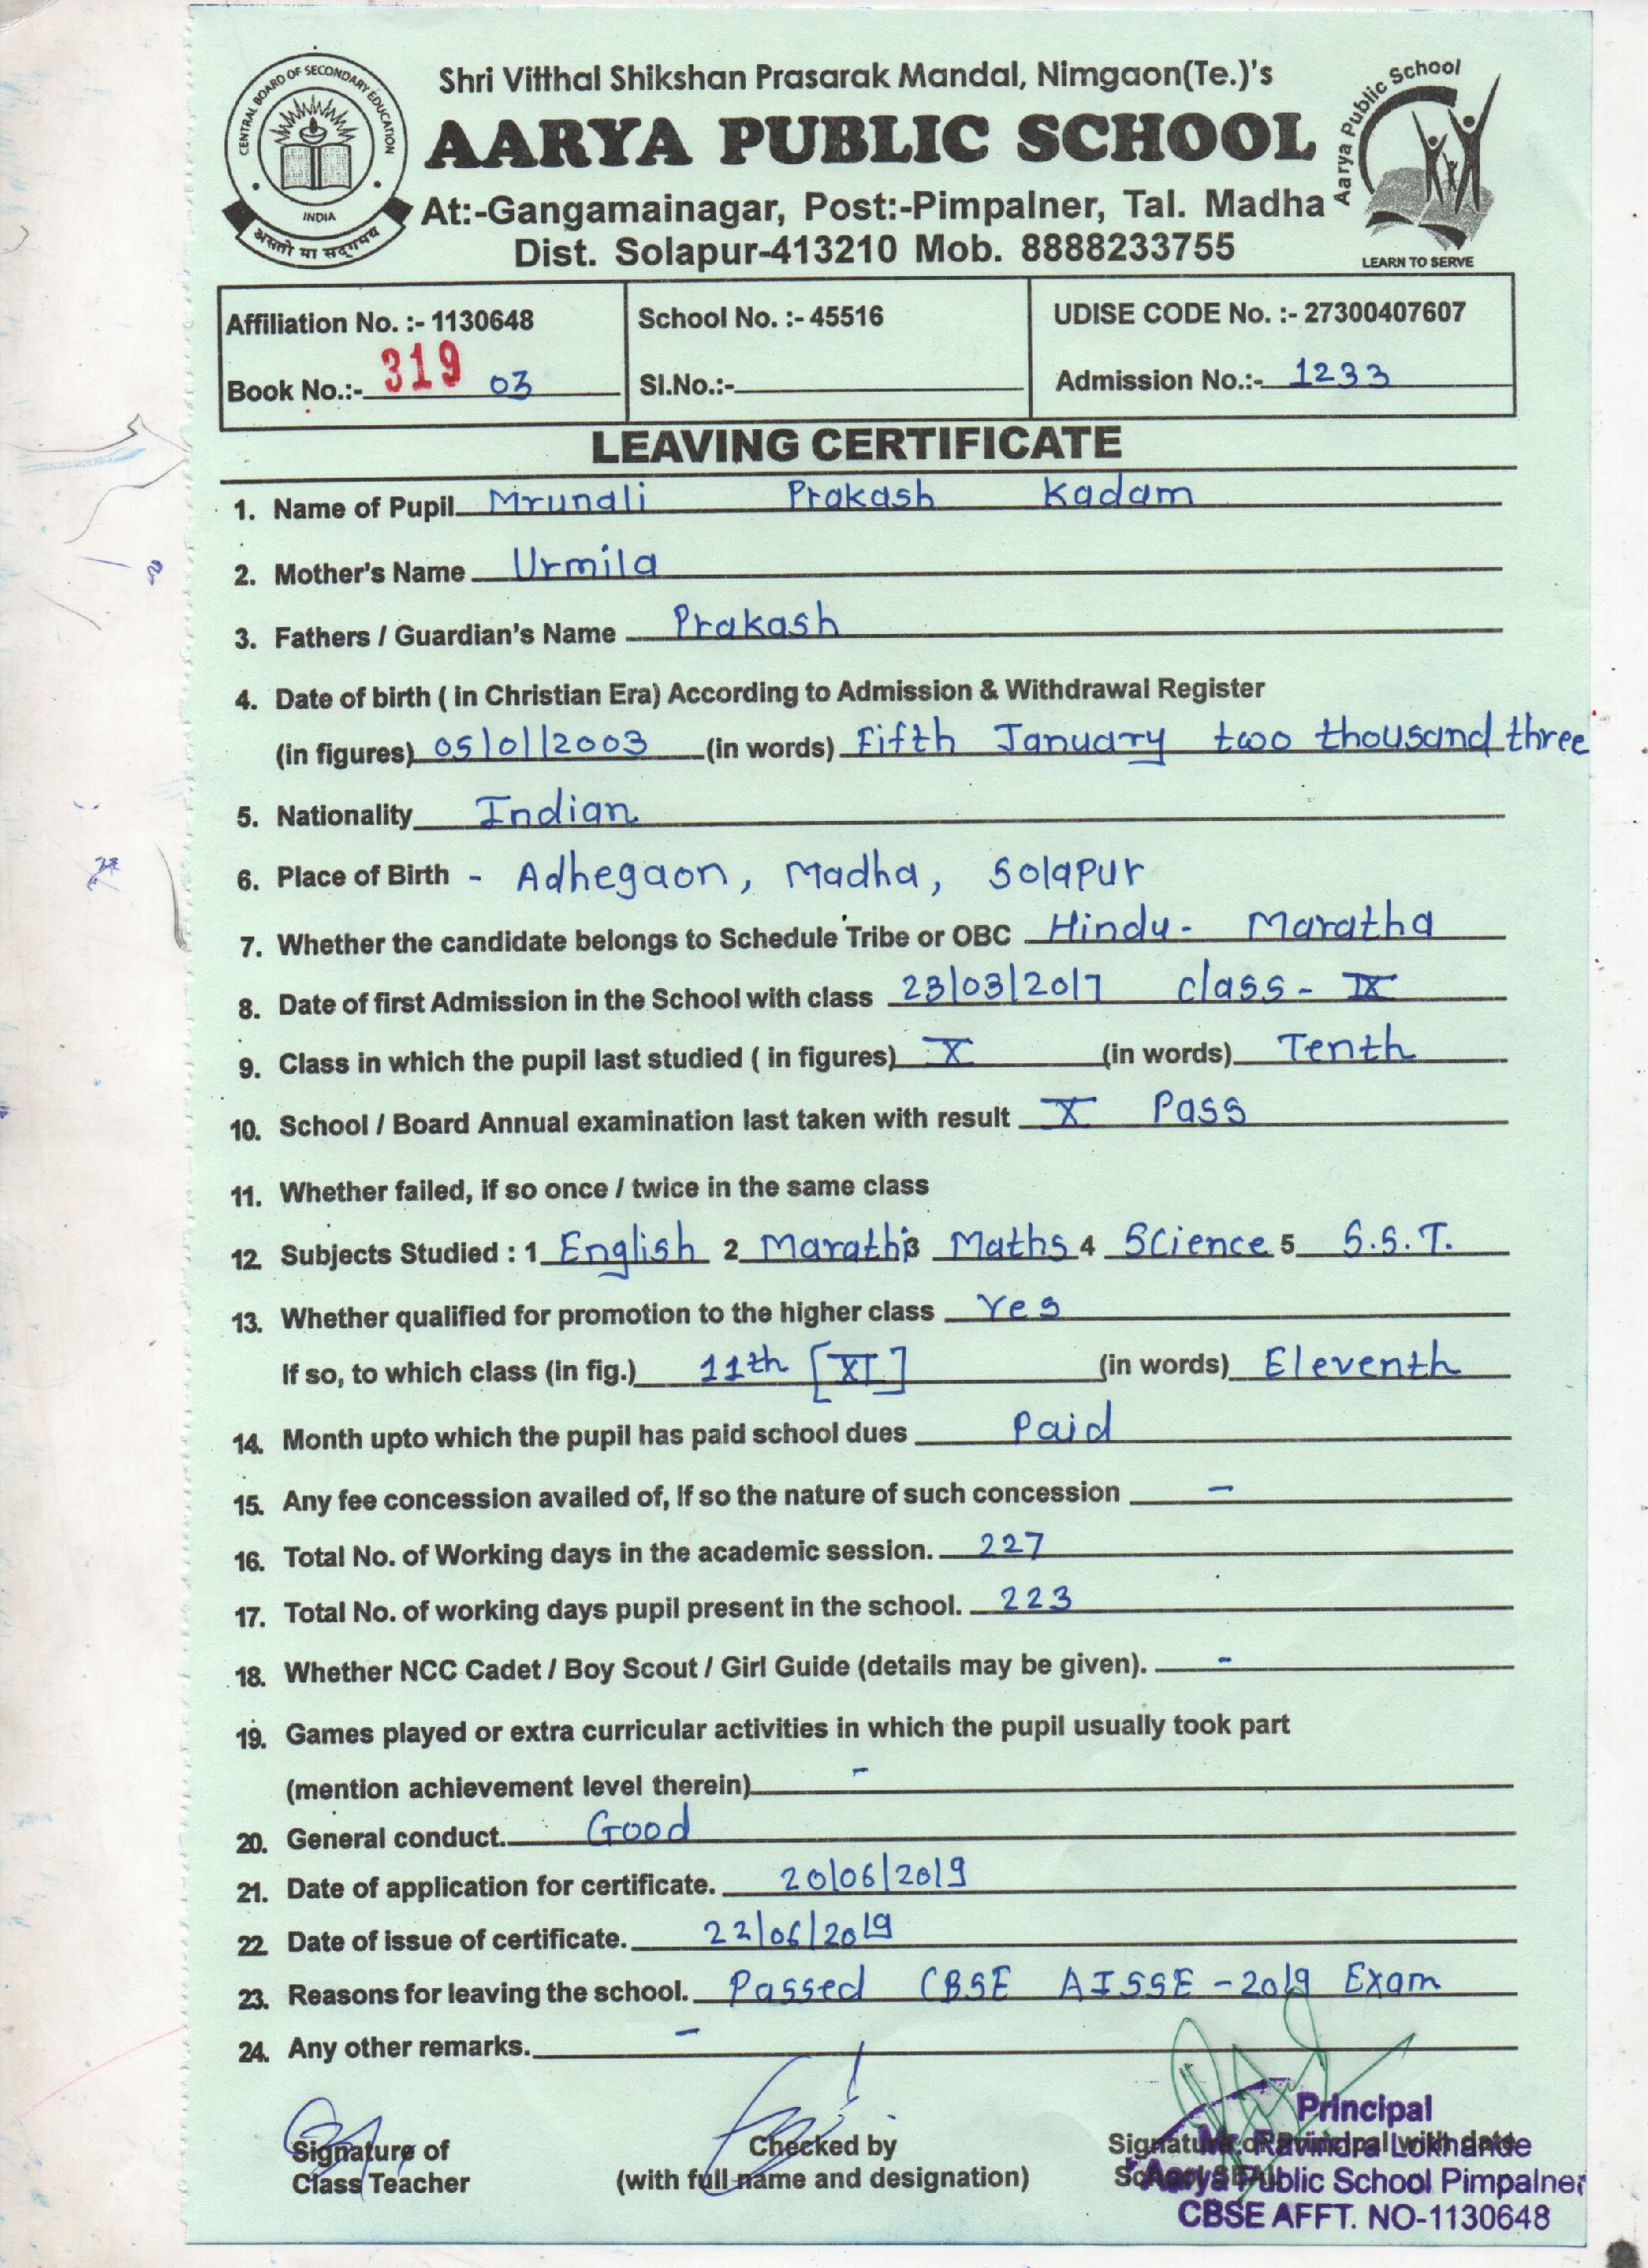 CENTRAL BOARD OF SECONDARY EDUCATION
INDIA
असतो मा सद्गमय
Shri Vitthal Shikshan Prasarak Mandal, Nimgaon(Te.)'s
AARYA PUBLIC SCHOOL
At:-Gangamainagar, Post:-Pimpalner, Tal. Madha
Dist. Solapur-413210 Mob. 8888233755
Aarya Public School
LEARN TO SERVE
Affiliation No. :- 1130648 School No. :- 45516 UDISE CODE No. :- 27300407607
Book No.:- 319 03 Sl.No.:- Admission No.:- 1233
LEAVING CERTIFICATE
1. Name of Pupil Mrunali Prakash Kadam
2. Mother's Name Urmila
3. Fathers / Guardian's Name Prakash
4. Date of birth ( in Christian Era) According to Admission & Withdrawal Register
(in figures) 05/01/2003 (in words) Fifth January two thousand three
5. Nationality Indian
6. Place of Birth - Adhegaon, Madha, Solapur
7. Whether the candidate belongs to Schedule Tribe or OBC Hindu- Maratha
8. Date of first Admission in the School with class 23/03/2017 class - IX
9. Class in which the pupil last studied ( in figures) X (in words) Tenth
10. School / Board Annual examination last taken with result X Pass
11. Whether failed, if so once / twice in the same class
12. Subjects Studied : 1 English 2 Marathi 3 Maths 4 Science 5 S.S.T.
13. Whether qualified for promotion to the higher class Yes
If so, to which class (in fig.) 11th [XI] (in words) Eleventh
14. Month upto which the pupil has paid school dues Paid
15. Any fee concession availed of, If so the nature of such concession -
16. Total No. of Working days in the academic session. 227
17. Total No. of working days pupil present in the school. 223
18. Whether NCC Cadet / Boy Scout / Girl Guide (details may be given). -
19. Games played or extra curricular activities in which the pupil usually took part
(mention achievement level therein) -
20. General conduct. Good
21. Date of application for certificate. 20/06/2019
22. Date of issue of certificate. 22/06/2019
23. Reasons for leaving the school. Passed CBSE AISSE - 2019 Exam
24. Any other remarks. -
Signature of
Class Teacher
Checked by
(with full name and designation)
Signature of Principal with date
School SEAL
Principal
Mr. Ravindra Lokhande
Aarya Public School Pimpalner
CBSE AFFT. NO-1130648